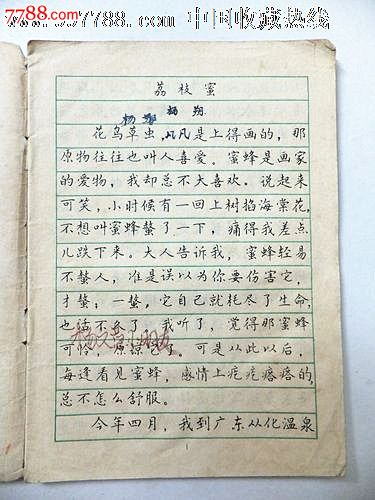 7788.com www.997788.com 中国收藏热线
荔枝蜜
杨朔
杨
花鸟草虫,凡是上得画的,那
原物往往也叫人喜爱。蜜蜂是画家
的爱物,我却总不大喜欢。说起来
可笑,小时候有一回上树掐海棠花,
不想叫蜜蜂螫了一下,痛得我差点
儿跌下来。大人告诉我,蜜蜂轻易
不螫人,准是误以为你要伤害它,
才螫;一螫,它自己就耗尽了生命,
也活不久了。我听了,觉得那蜜蜂
可怜,原谅它了。可是从此以后,
每逢看见蜜蜂,感情上疙疙瘩瘩的,
总不怎么舒服。
今年四月,我到广东从化温泉
1